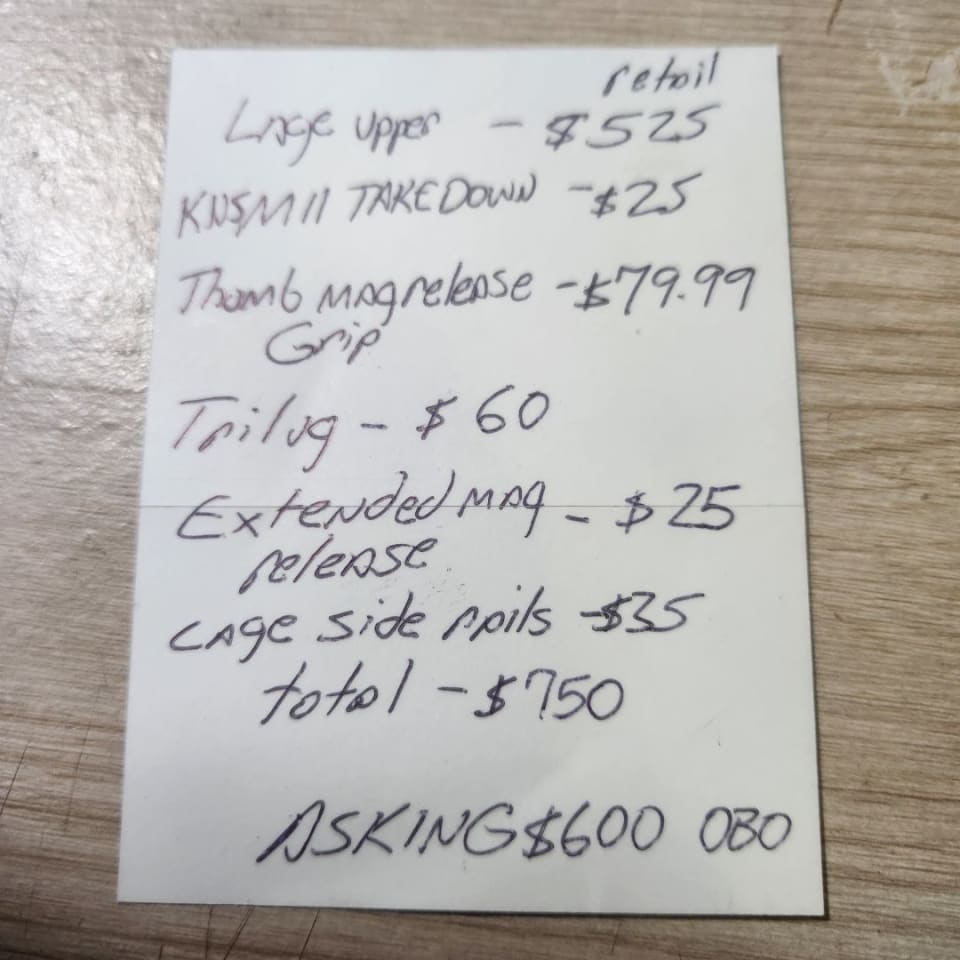 retail
Lage upper - $525
KNS M11 TAKEDOWN - $25
Thumb mag release - $79.99
Grip
Trilug - $60
Extended mag - $25
release
Lage side rails - $35
total - $750
ASKING $600 OBO